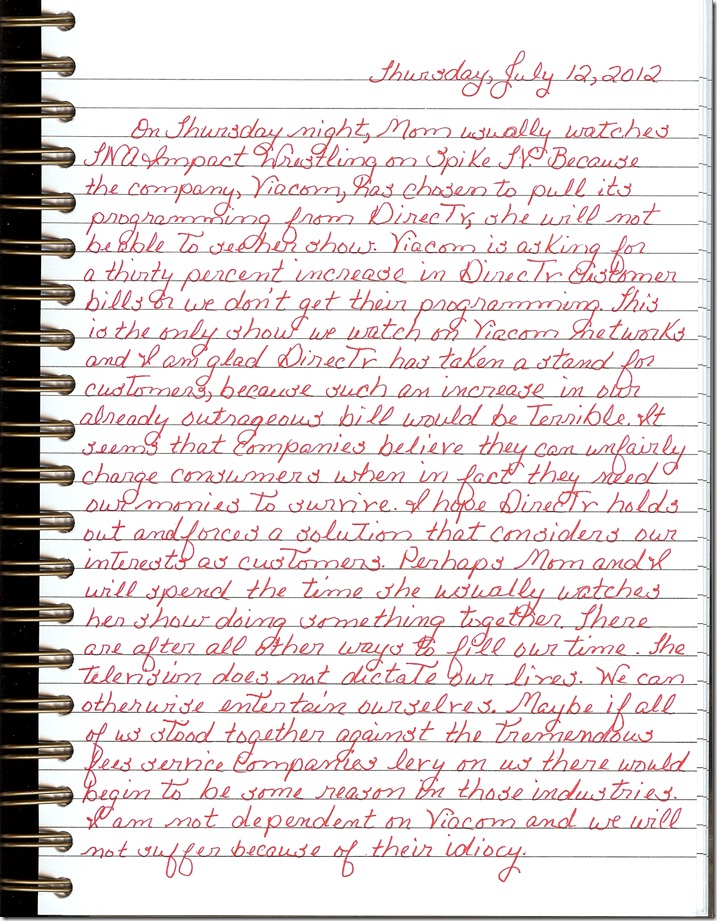 Thursday, July 12, 2012
On Thursday night, Mom usually watches
TNA Impact Wrestling on Spike TV. Because
the company, Viacom, has chosen to pull its
programming from DirecTv, she will not
be able to see her show. Viacom is asking for
a thirty percent increase in DirecTv customer
bills or we don't get their programming. This
is the only show we watch on Viacom networks
and I am glad DirecTv has taken a stand for
customers, because such an increase in our
already outrageous bill would be terrible. It
seems that companies believe they can unfairly
charge consumers when in fact they need
our monies to survive. I hope DirecTv holds
out and forces a solution that considers our
interests as customers. Perhaps Mom and I
will spend the time she usually watches
her show doing something together. There
are after all other ways to fill our time. The
television does not dictate our lives. We can
otherwise entertain ourselves. Maybe if all
of us stood together against the tremendous
fees service companies levy on us there would
begin to be some reason in those industries.
I am not dependent on Viacom and we will
not suffer because of their idiocy.